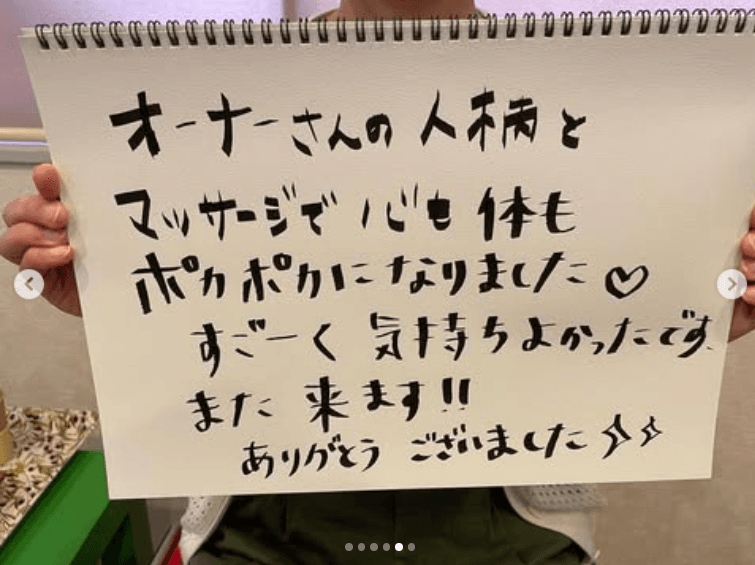 オーナーさんの人柄と
マッサージで心も体も
ポカポカになりました♡
すごーく気持ちよかったです。
また来ます!!
ありがとうございました